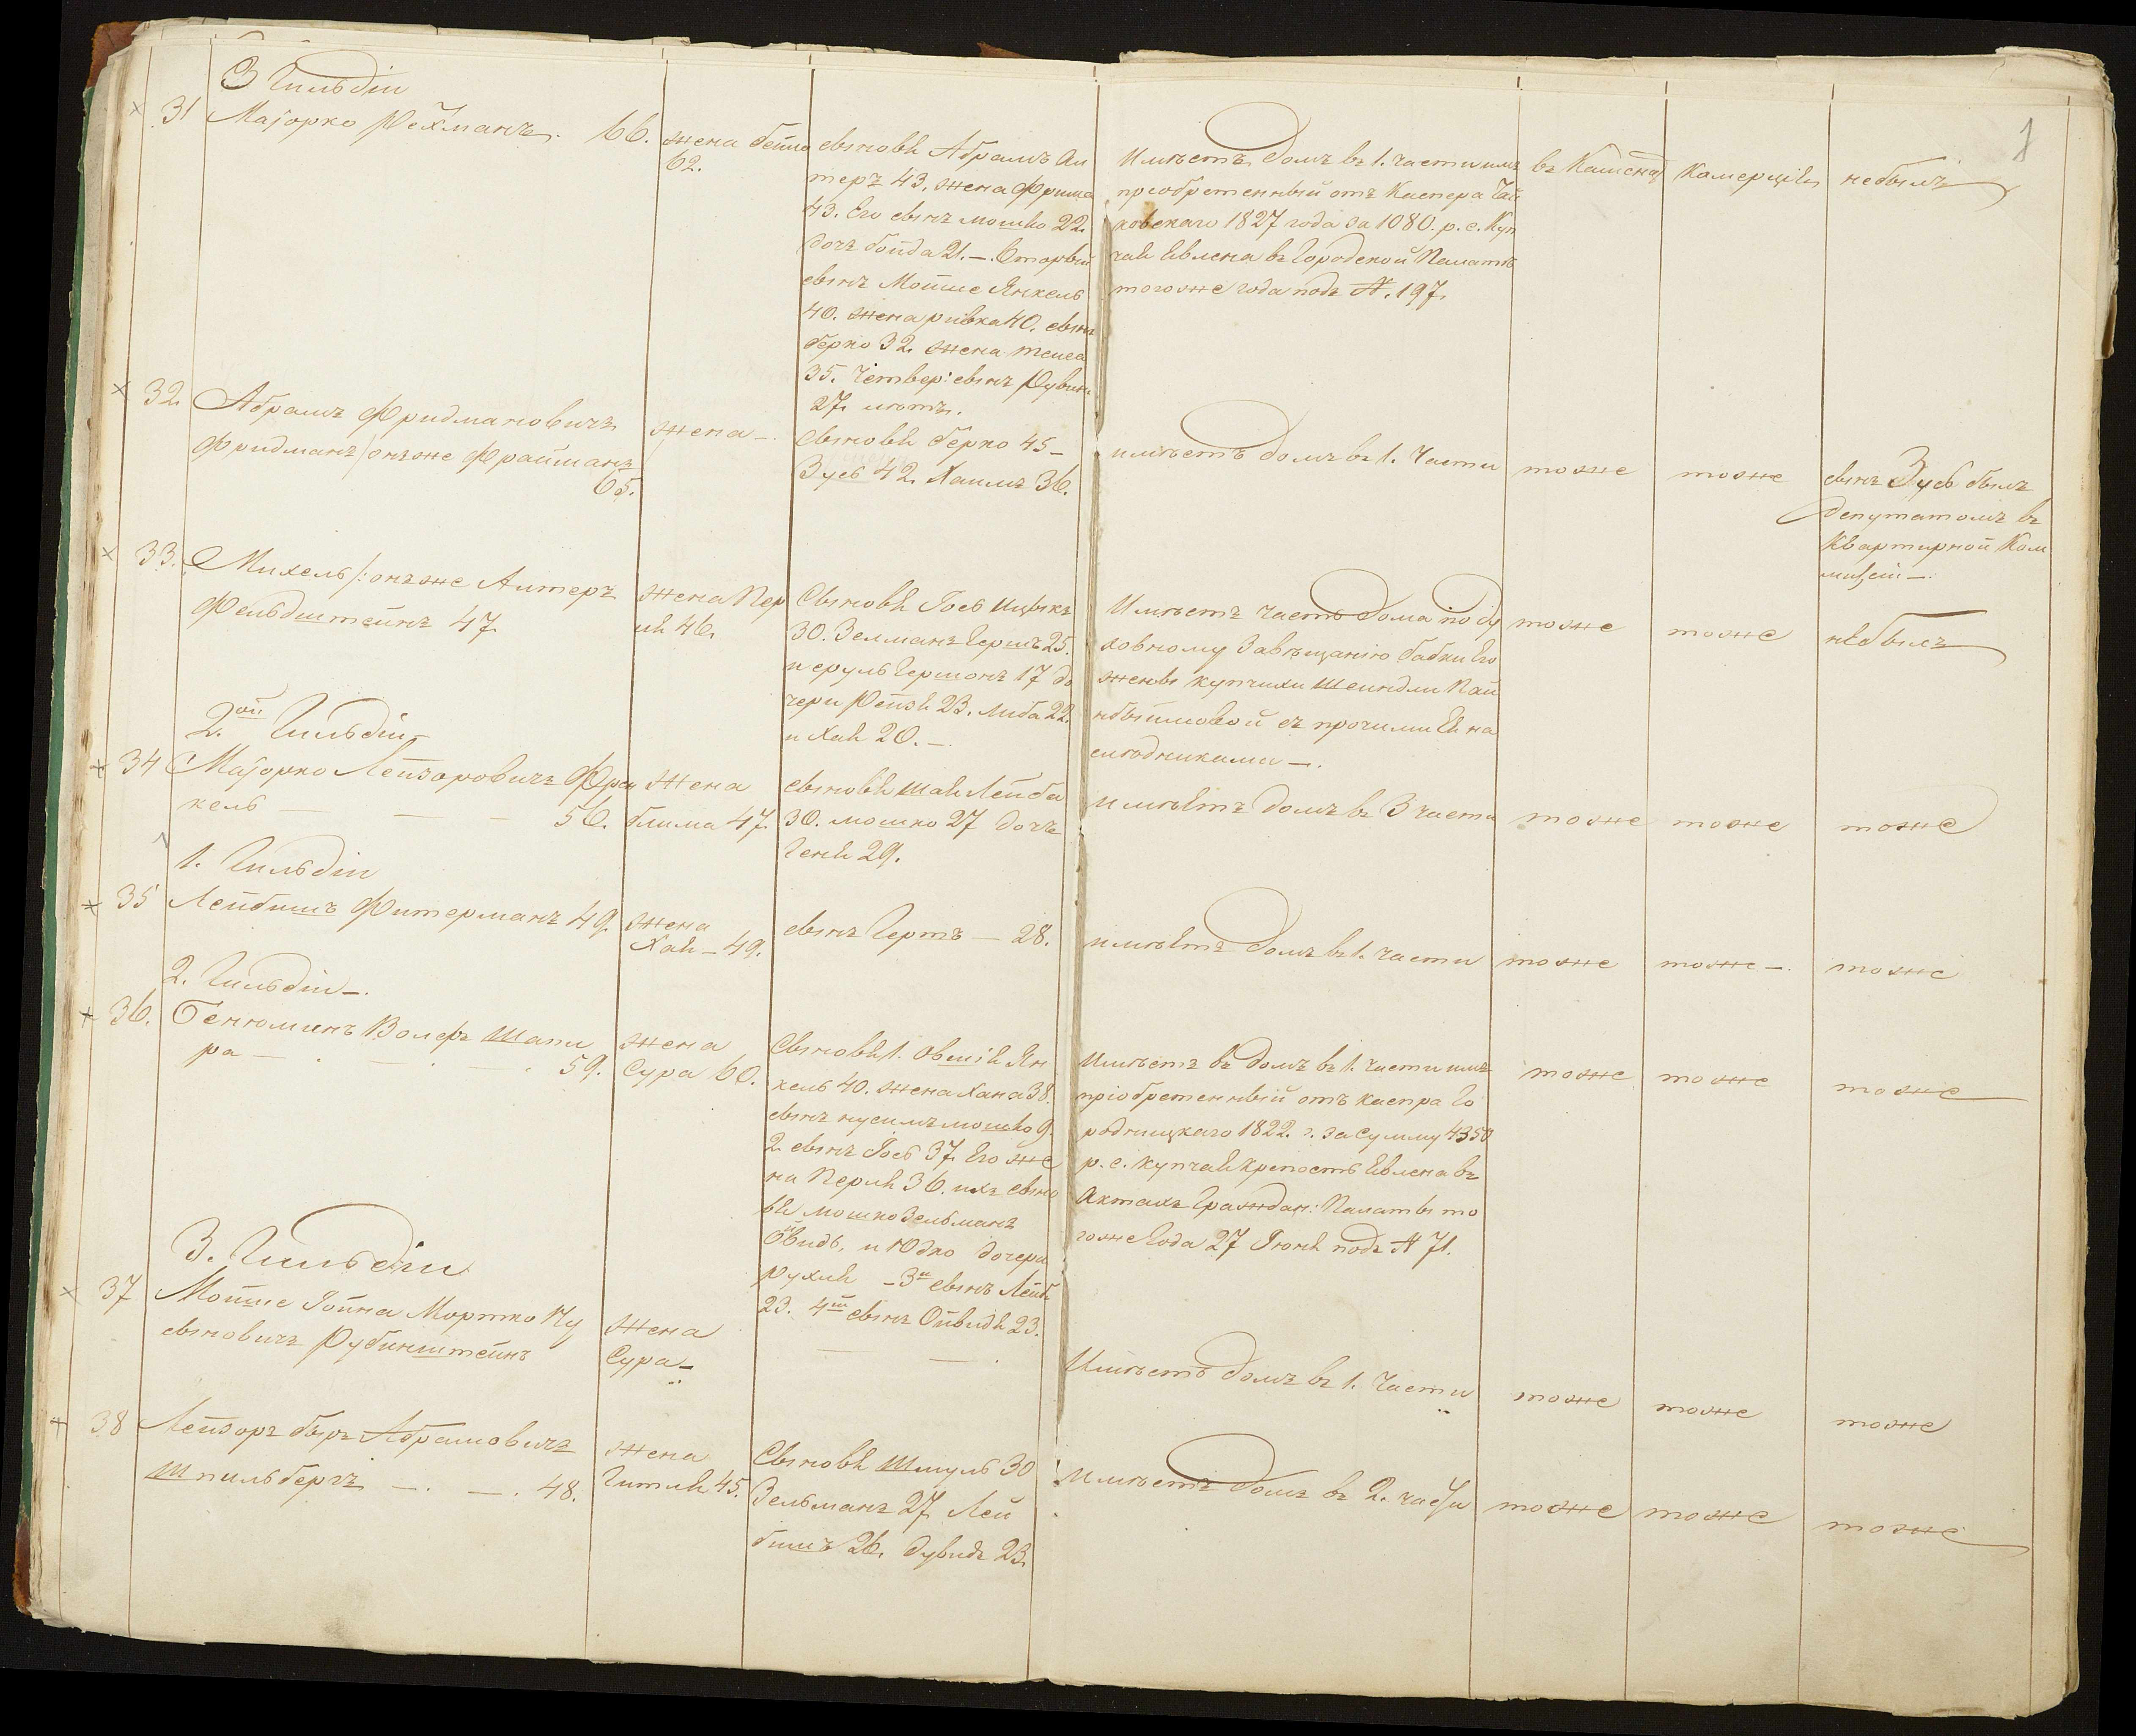 1
3 Гильдіи
31 Маіорко Рехманъ. 66.
жена бейла
62.
сыновья Абрамъ Ал
теръ 43, жена Фрима
43. Его сынъ Мошко 22.
дочь бойда 21. — Вторый
сынъ Мойше Янкель
40. жена ривка 40. сынъ
берко 32. жена
35. Четвер: сынъ Рувинъ
27. летъ.
Имѣетъ домъ въ 1. части имъ
пріобретенный отъ Каспера Чай
ковскаго 1827 года за 1080. р. с. Куп
чая Явлена въ Городской Палатѣ
того же года подъ N. 197.
въ Каменц
Комерціи
небылъ
32. Абрамъ Фридмановичъ
Фридманъ / онъже Фрайманъ
65.
жена —.
Сыновья берко 45 —
Зусь 42. Хаимъ 36.
имѣетъ домъ въ 1. Части
тоже
тоже
сынъ Зусь былъ
депутатомъ въ
Квартирной Ком
мисіи —.
33. Михель /: онъже Алтеръ
Фельдштейнъ 47.
жена Пер
ля 46.
Сыновья Іось Ицыкъ
30. Зелманъ Гершъ 25.
и сруль Гершонъ 17 до
чери Рейзя 23. Либа 22.
и Хая 20. —.
Имѣетъ часть дома по ду
ховному Завѣщанію бабки Его
жены купчихи Шейндли
съ прочими Ея на
слѣдниками —.
тоже
тоже
небылъ
2.ой Гильдіи
34 Маіорко Лейзоровичъ Френ
кель — — — 56.
Жена
блима 47.
сыновья Шая Лейба
30. мошко 27 дочь
Геня 29.
имѣетъ домъ въ 3 части
тоже
тоже
тоже
1. Гильдіи
35 Лейбишъ Фитерманъ 49.
жена
Хая — 49.
сынъ Гертъ — 28.
имѣетъ домъ въ 1. части
тоже
тоже —.
тоже
2. Гильдіи —.
36. Бенюминъ Волефъ Шапи
ра — . — . — . 59.
жена
Сура 60.
Сыновья 1. Овшія Ян
кель 40. жена Хана 38.
сынъ нусимъ мошко 9.
2. сынъ Іось 37. Его же
на Перля 36. ихъ сыно
вья мошко Зельманъ
Ойвидъ, и Юдко дочера
рухля — 3й сынъ Лейб
23. 4й сынъ Ойвидя 23.
Имѣетъ въ домъ въ 1. части имъ
пріобретенный отъ каспра Го
родницкаго 1822. г. за Сумму 4350
р. с. купчая крепость Явлена въ
Актахъ Граждан: Палаты то
гоже Года 27 Іюня подъ N 71.
тоже
тоже
тоже
3. Гильдіи
37 Мойше Іойна Мортко Ну
сыновичъ Рубинштейнъ
жена
Сура —
— — .
Имѣетъ домъ въ 1. Части
тоже
тоже
тоже
38 Лейзоръ бъръ Абрамовичъ
Шпильбергъ — . — . 48.
жена
Гитля 45.
Сыновья Шмуль 30
Зельманъ 27. Лей
бишъ 26. дувидъ 23.
Имѣетъ домъ въ 2. части
тоже
тоже
тоже